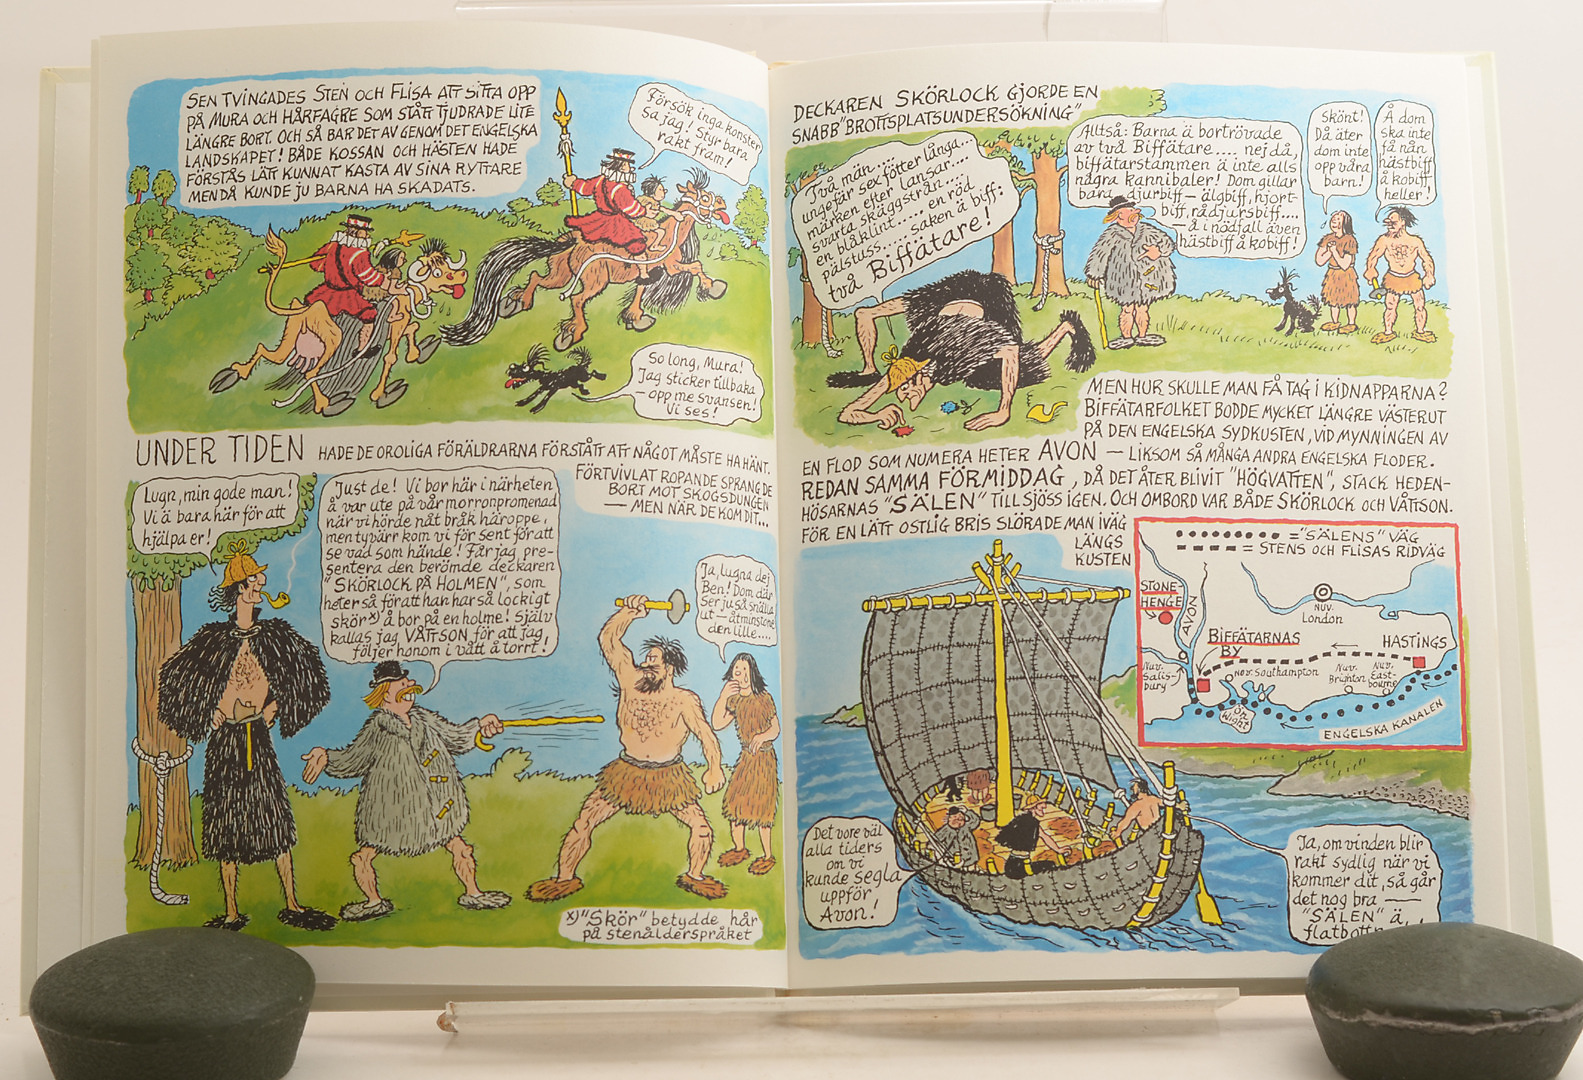 SEN TVINGADES STEN OCH FLISA ATT SITTA OPP
PÅ MURA OCH HÅRFAGRE SOM STÅTT TJUDRADE LITE
LÄNGRE BORT. OCH SÅ BAR DET AV GENOM DET ENGELSKA
LANDSKAPET! BÅDE KOSSAN OCH HÄSTEN HADE
FÖRSTÅS LÄTT KUNNAT KASTA AV SINA RYTTARE
MEN DÅ KUNDE JU BARNA HA SKADATS.
Försök inga konster
sa jag! Styr bara
rakt fram!
So long, Mura!
Jag sticker tillbaka
— opp me svansen!
Vi ses!
UNDER TIDEN HADE DE OROLIGA FÖRÄLDRARNA FÖRSTÅTT ATT NÅGOT MÅSTE HA HÄNT.
FÖRTVIVLAT ROPANDE SPRANG DE
BORT MOT SKOGSDUNGEN
— MEN NÄR DE KOM DIT...
Lugn, min gode man!
Vi ä bara här för att
hjälpa er!
Just de! Vi bor här i närheten
å var ute på vår morronpromenad
när vi hörde nåt bråk häroppe,
men tyvärr kom vi för sent för att
se vad som hände! Får jag pre-
sentera den berömde deckaren
"SKÖRLOCK PÅ HOLMEN", som
heter så för att han har så lockigt
skör x) å bor på en holme! Själv
kallas jag VÅTTSON för att jag
följer honom i vått å torrt!
Ja, lugna dej
Ben! Dom där
ser ju så snälla
ut — åtminstone
den lille....
x) "Skör" betydde hår
på stenåldersspråket
DECKAREN SKÖRLOCK GJORDE EN
SNABB "BROTTSPLATSUNDERSÖKNING"
Två män....
ungefär sex fötter långa...
märken efter lansar....
svarta skäggstrån....
en blåklint..... en röd
pälstuss.... saken ä biff:
två Biffätare!
Alltså: Barna ä bortrövade
av två Biffätare.... nej då,
biffätarstammen ä inte alls
några kannibaler! Dom gillar
bara djurbiff — älgbiff, hjort-
biff, rådjursbiff....
— å i nödfall även
hästbiff å kobiff!
Skönt!
Då äter
dom inte
opp våra
barn!
Å dom
ska inte
få nån
hästbiff
å kobiff
heller!
MEN HUR SKULLE MAN FÅ TAG I KIDNAPPARNA?
BIFFÄTARFOLKET BODDE MYCKET LÄNGRE VÄSTERUT
PÅ DEN ENGELSKA SYDKUSTEN, VID MYNNINGEN AV
EN FLOD SOM NUMERA HETER AVON — LIKSOM SÅ MÅNGA ANDRA ENGELSKA FLODER.
REDAN SAMMA FÖRMIDDAG, DÅ DET ÅTER BLIVIT "HÖGVATTEN", STACK HEDEN-
HÖSARNAS "SÄLEN" TILL SJÖSS IGEN. OCH OMBORD VAR BÅDE SKÖRLOCK OCH VÅTTSON.
FÖR EN LÄTT OSTLIG BRIS SLÖRADE MAN IVÄG
LÄNGS
KUSTEN
= "SÄLENS" VÄG
= STENS OCH FLISAS RIDVÄG
STONE-
HENGE
AVON
NUV.
London
BIFFÄTARNAS
BY
HASTINGS
Nuv.
Salis-
bury
Nuv. Southampton
Nuv.
Brighton
Nuv.
East-
bourne
Ön
Wight
ENGELSKA KANALEN
Det vore väl
alla tiders
om vi
kunde segla
uppför
Avon!
Ja, om vinden blir
rakt sydlig när vi
kommer dit, så går
det nog bra —
"SÄLEN" ä
flatbottn